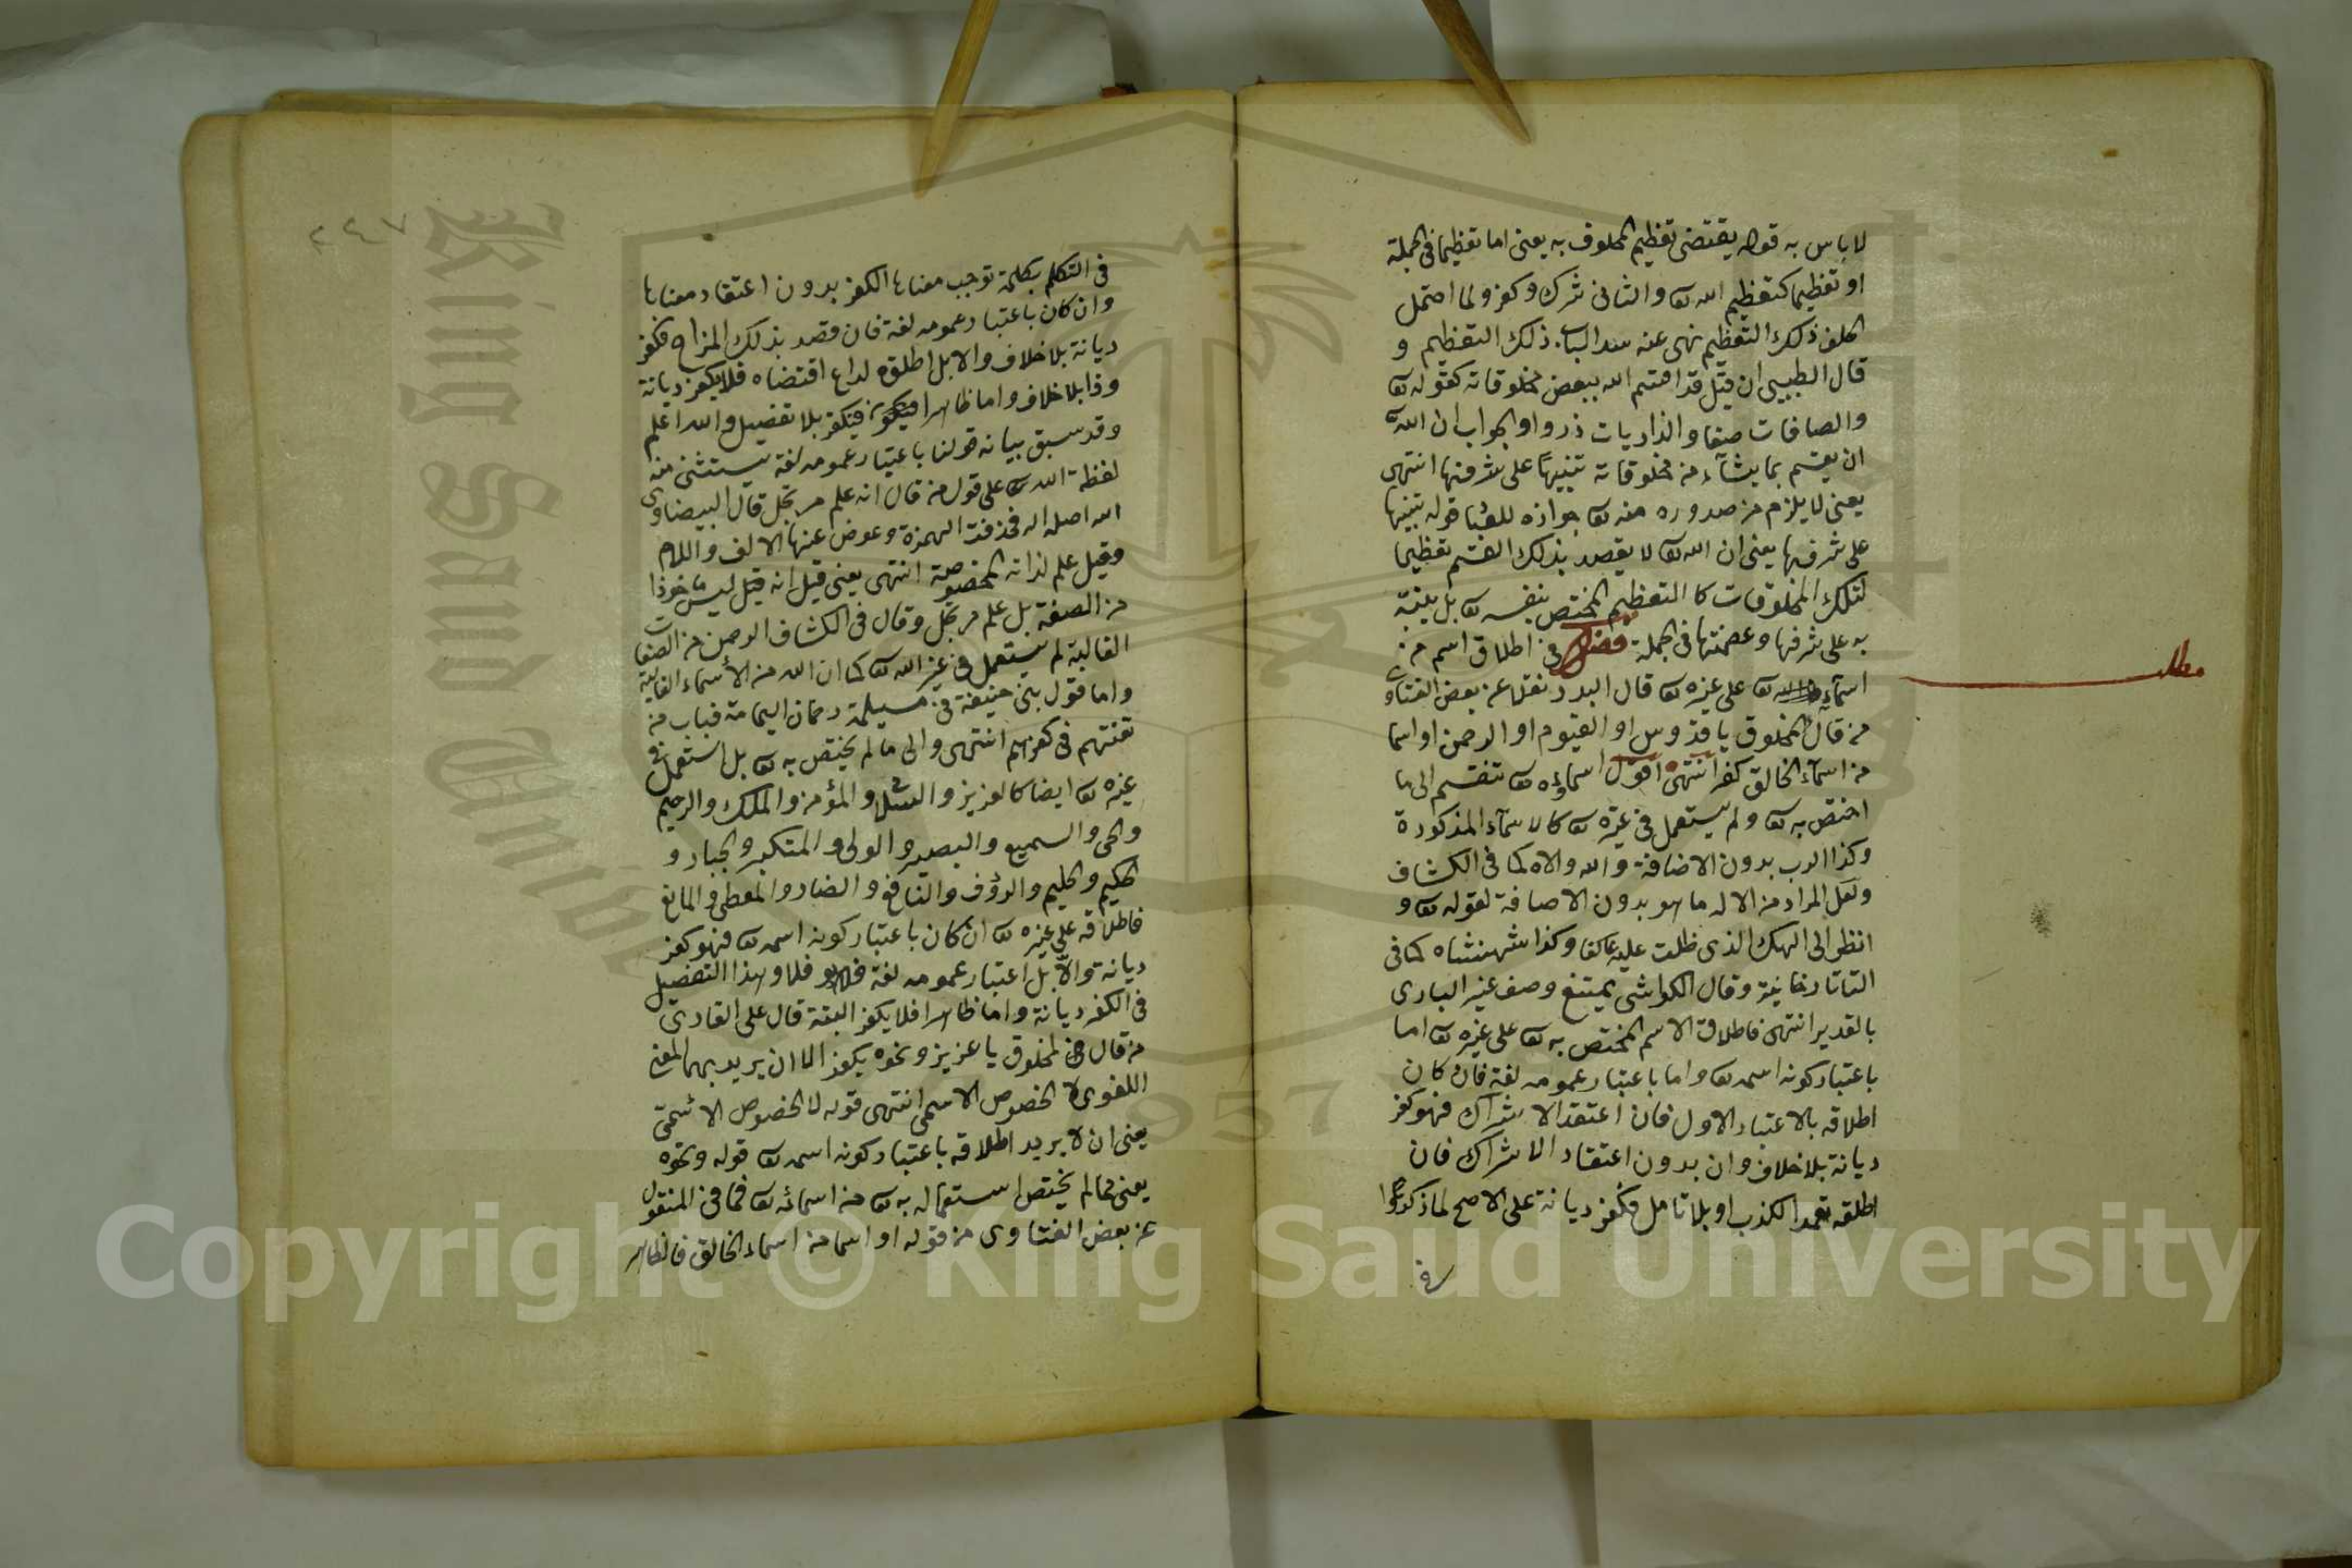 لا باس به قوله يقتضى تعظيم المحلوف به يعنى اما تعظيما فى الجملة
او تعظيما كتعظيم الله تع والثانى شرك وكفر ولما احتمل
الحلف ذلك التعظيم نهى عنه سدا لباب ذلك التعظيم و
قال الطيبى ان قيل قد اقسم الله ببعض مخلوقاته كقوله تع
والصافات صفا والذاريات ذروا والجواب ان الله تع
ان يقسم بما يشآء من مخلوقاته تنبيها على شرفها انتهى
يعنى لا يلزم من صدوره منه تع جوازه للعباد قوله تنبيها
على شرفها يعنى ان الله تع لا يقصد بذلك القسم تعظيما
لتلك المخلوقات كالتعظيم المختص بنفسه تع بل ينبّه
به على شرفها وعصمتها فى الجملة فصل فى اطلاق اسم من
اسمآء الله تع على غيره تع قال البدر نقلا عن بعض الفتاوى
من قال لمخلوق يا قدوس او القيوم او الرحمن او اسما
من اسمآء الخالق كفر انتهى اقول اسماؤه تع تنقسم الى ما
اختص به تع ولم يستعمل فى غيره تع كالاسمآء المذكورة
وكذا الرب بدون الاضافة والله والاه كما فى الكشاف
ولعل المراد من الاله ما هو بدون الاضافة لقوله تع و
انظر الى الهك الذى ظلت عليه عاكفا وكذا شهنشاه كما فى
التاتارخانية وقال الكواشى يمتنع وصف غير البارى
بالقدير انتهى فاطلاق الاسم المختص به تع على غيره تع اما
باعتبار كونه اسمه تع واما باعتبار عمومه لغة فان كان
اطلاقه بالاعتبار الاول فان اعتقد الاشراك فهو كفر
ديانة بلا خلاف وان بدون اعتقاد الاشراك فان
اطلقه تعمد الكذب او بلا تامل فكفر ديانة على الاصح لما ذكروا
فى
مطلب
٢٤٧
فى التكلم بكلمة توجب معناها الكفر بدون اعتقاد معناها
وان كان باعتبار عمومه لغة فان قصد بذلك المزاح فكفر
ديانة بلا خلاف والا بل اطلق لداع اقتضاه فلا يكفر ديانة
وذا بلا خلاف واما ظاهرا فيكفر بلا تفصيل والله اعلم
وقد سبق بيانه قولنا باعتبار عمومه لغة يستثنى منه
لفظة الله تع على قول من قال انه علم مرتجل قال البيضاوى
الله اصله اله فحذفت الهمزة وعوض عنها الالف واللام
وقيل علم لذاته المخصوصة انتهى يعنى قيل انه قيل ليس ماخوذا
من الصفة بل علم مرتجل وقال فى الكشاف الرحمن من الصفات
الغالبة لم يستعمل فى غير الله تع كما ان الله من الأسماء الغالبة
واما قول بنى حنيفة فى مسيلمة رحمان اليمامة فباب من
تعنتهم فى كفرهم انتهى والى ما لم يختص به تع بل استعمل فى
غيره تع ايضا كالعزيز والسلام والمؤمن والملك والرحيم
والحى والسميع والبصير والولى والمتكبر والجبار و
الحكيم والحليم والرؤف والنافع والضار والمعطى والمانع
فاطلاقه على غيره تع ان كان باعتبار كونه اسمه تع فهو كفر
ديانة والا بل اعتبار عمومه لغة فلا وهذا التفصيل
فى الكفر ديانة واما ظاهرا فلا يكفر البتة قال على القارى
من قال لمخلوق يا عزيز ونحوه يكفر الا ان يريد بهما المعنى
اللغوى لا الخصوص الاسمى انتهى قوله لا الخصوص الاسمى
يعنى ان لا يريد اطلاقه باعتبار كونه اسمه تع قوله ونحوه
يعنى مما لم يختص استعماله به تع من اسمائه تع فما فى المنقول
عن بعض الفتاوى من قوله او اسما من اسماء الخالق فالظاهر
Copyright © King Saud University
King Saud Unive
1957